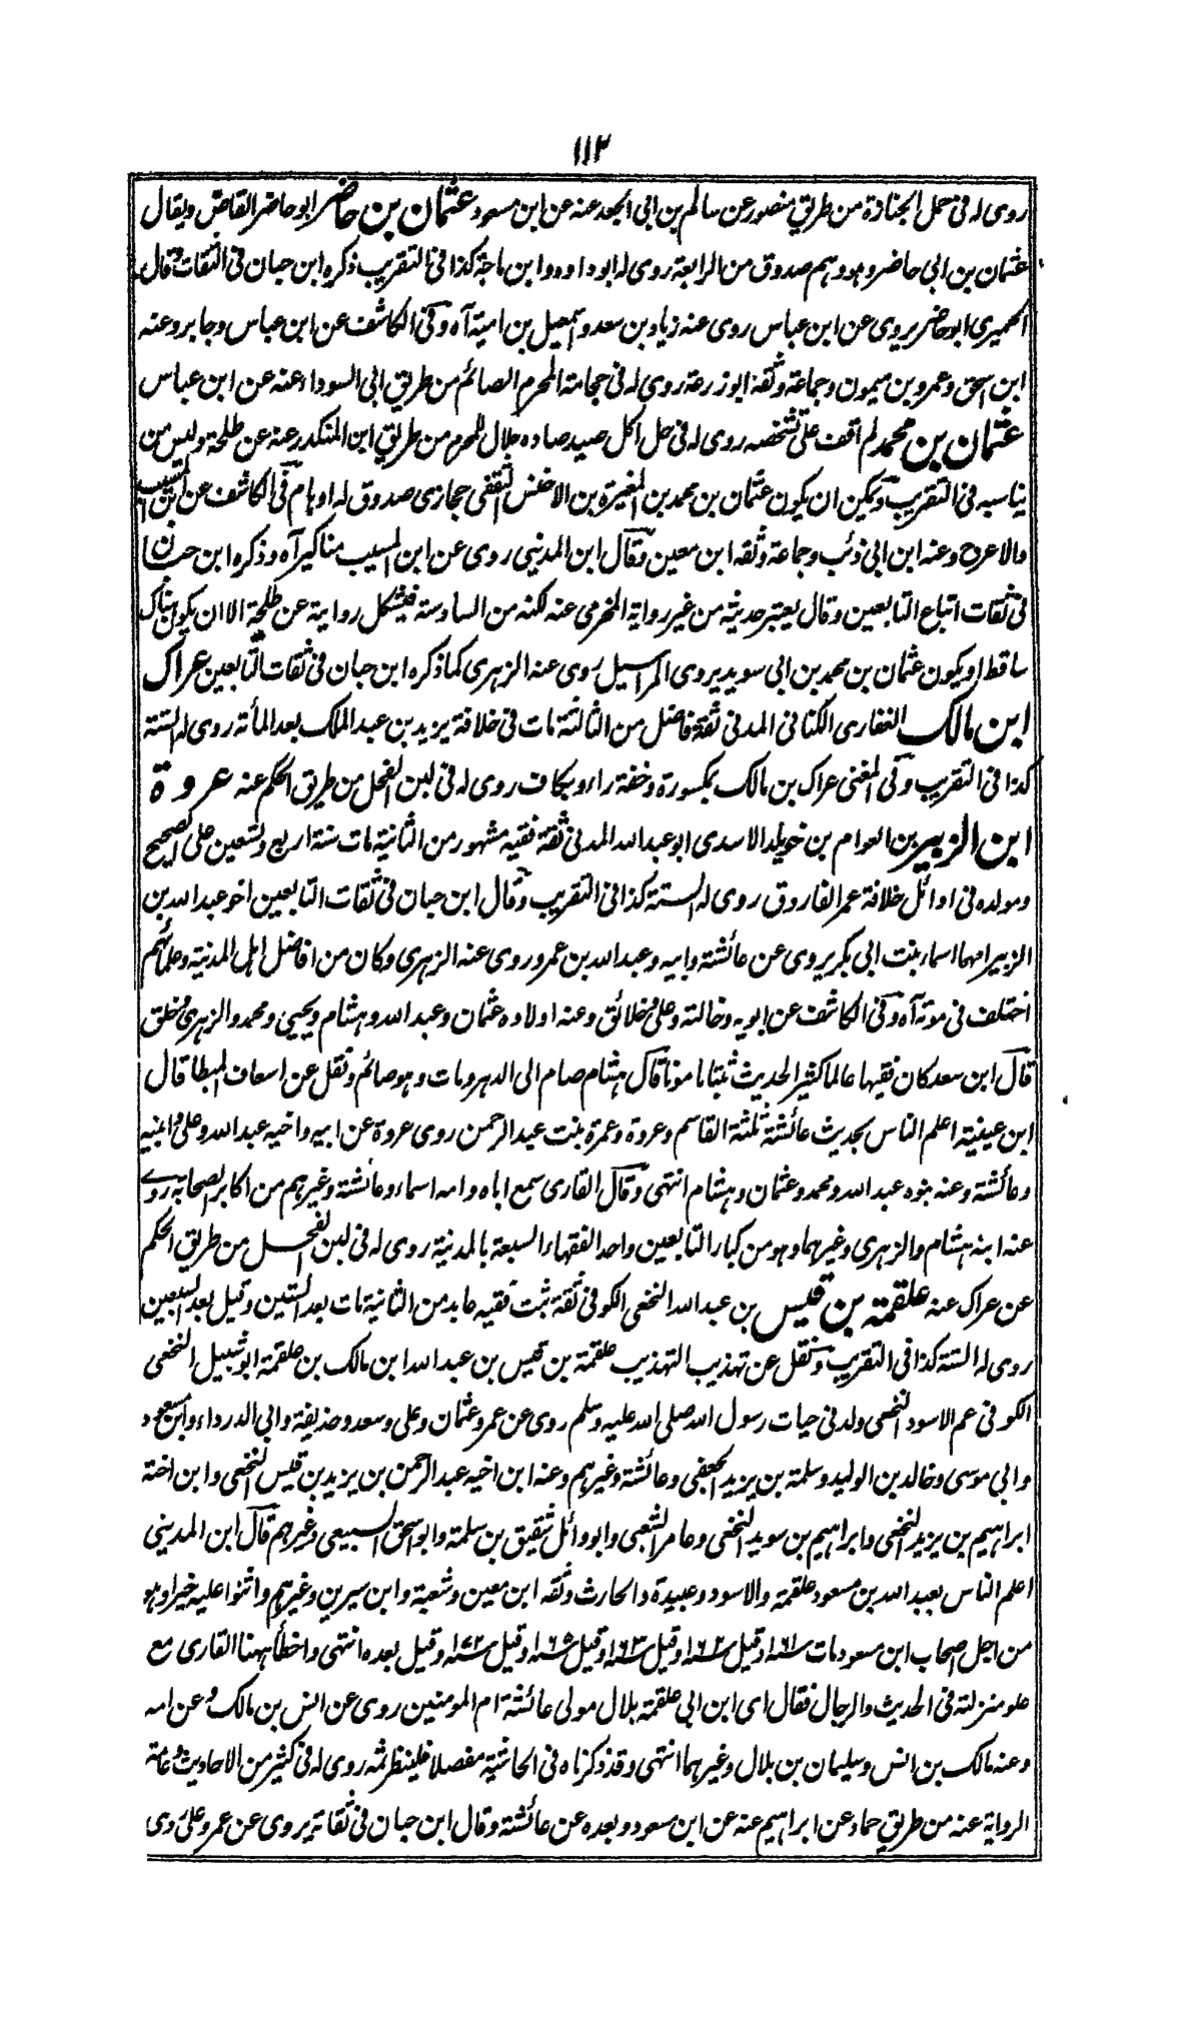 ١١٢
روى له فى حمل الجنازة من طريق منصور عن سالم بن ابى الجعد عنه عن ابن مسعود عثمان بن حاضر ابو حاضر القاص ويقال
عثمان بن ابى حاضر وهو وهم صدوق من الرابعة روى له ابو داود وابن ماجة كذا فى التقريب ذكره ابن حبان فى الثقات وقال
الحميرى ابو حاضر يروى عن ابن عباس روى عنه زياد بن سعد واسمعيل بن امية آه وفى الكاشف عن ابن عباس وجابر وعنه
ابن اسحق وعمرو بن ميمون وجماعة وثقه ابو زرعة روى له فى حجامة المحرم الصائم من طريق ابى السوداء عنه عن ابن عباس
عثمان بن محمد لم اقف على تشخصه روى له فى حل اكل صيد صاده حلال للمحرم من طريق ابن المنكدر عنه عن طلحة وليس من
يناسبه فى التقريب ويمكن ان يكون عثمان بن محمد بن المغيرة بن الاخنس الثقفى حجازى صدوق له اوهام فى الكاشف عن ابن المسيب
والاعرج وعنه ابن ابى ذئب وجماعة وثقه ابن معين وقال ابن المدينى روى عن ابن المسيب مناكير آه وذكره ابن حبان
فى ثقات اتباع التابعين وقال يعتبر حديثه من غير رواية المخرمى عنه لكنه من السادسة فيشكل روايته عن طلحة الا ان يكون هناك
ساقط او يكون عثمان بن محمد بن ابى سويد يروى المراسيل روى عنه الزهرى كما ذكره ابن حبان فى ثقات التابعين عراك
ابن مالك الغفارى الكنانى المدنى ثقة فاضل من الثالثة مات فى خلافة يزيد بن عبد الملك بعد المأة روى له الستة
كذا فى التقريب وفى المغنى عراك بن مالك بمكسورة وخفة راء وبكاف روى له فى لبن الفحل من طريق الحكم عنه عروة
ابن الزبير بن العوام بن خويلد الاسدى ابو عبد الله المدنى ثقة فقيه مشهور من الثانية مات سنة اربع وتسعين على الصحيح
ومولده فى اوائل خلافة عمر الفاروق روى له الستة كذا فى التقريب وقال ابن حبان فى ثقات التابعين اخو عبد الله بن
الزبير امهما اسماء بنت ابى بكر يروى عن عائشة وابيه وعبد الله بن عمر وروى عنه الزهرى وكان من افاضل اهل المدينة وعلمائهم
اختلف فى موته آه وفى الكاشف عن ابويه وخالته وعلى وخلائق وعنه اولاده عثمان وعبد الله وهشام ويحيى ومحمد والزهرى وخلق
قال ابن سعد كان فقيها عالما كثير الحديث ثبتا مامونا قال هشام صام ابى الدهر ومات وهو صائم ونقل عن اسعاف المبطا قال
ابن عيينة اعلم الناس بحديث عائشة ثلثة القاسم وعروة وعمرة بنت عبد الرحمن روى عروة عن ابيه واخيه عبد الله وعلى وابنيه
وعائشة وعنه بنوه عبد الله ومحمد وعثمان وهشام انتهى وقال القارى سمع اباه وامه اسماء وعائشة وغيرهم من اكابر الصحابة روے
عنه ابنه هشام والزهرى وغيرهما وهو من كبار التابعين واحد الفقهاء السبعة بالمدينة روى له فى لبن الفحل من طريق الحكم
عن عراك عنه علقمة بن قيس بن عبد الله النخعى الكوفى ثقة ثبت فقيه عابد من الثانية مات بعد الستين وقيل بعد السبعين
روى له الستة كذا فى التقريب ونقل عن تهذيب التهذيب علقمة بن قيس بن عبد الله ابن مالك بن علقمة ابو شبيل النخعى
الكوفى عم الاسود النخعى ولد فى حيات رسول الله صلى الله عليه وسلم روى عن عمر وعثمان وعلى وسعد وحذيفة وابى الدرداء وابن مسعود
وابى موسى وخالد بن الوليد وسلمة بن يزيد الجعفى وعائشة وغيرهم وعنه ابن اخيه عبد الرحمن بن يزيد بن قيس النخعى وابن اخته
ابراهيم بن يزيد النخعى وابراهيم بن سويد النخعى وعامر الشعبى وابو وائل شقيق بن سلمة وابو اسحق السبيعى وغيرهم قال ابن المدينى
اعلم الناس بعبد الله بن مسعود علقمة والاسود وعبيدة والحارث وثقه ابن معين وشعبة وابن سيرين وغيرهم واثنوا عليه خيرا وهو
من اجل اصحاب ابن مسعود مات ١٦١ وقيل ١٦٢ وقيل ١٦٣ وقيل ١٦٥ وقيل ١٧٢ وقيل بعده انتهى واخطأ ههنا القارى مع
علو منزلته فى الحديث والرجال فقال اى ابن ابى علقمة بلال مولى عائشة ام المومنين روى عن انس بن مالك وعن امه
وعنه مالك بن انس وسليمان بن بلال وغيرهما انتهى وقد ذكرناه فى الحاشية مفصلا فلينظر ثمه روى له فى كثير من الاحاديث وعامة
الرواية عنه من طريق حماد عن ابراهيم عنه عن ابن مسعود وبعده عن عائشة وقال ابن حبان فى ثقاته يروى عن عمر وعلى روى